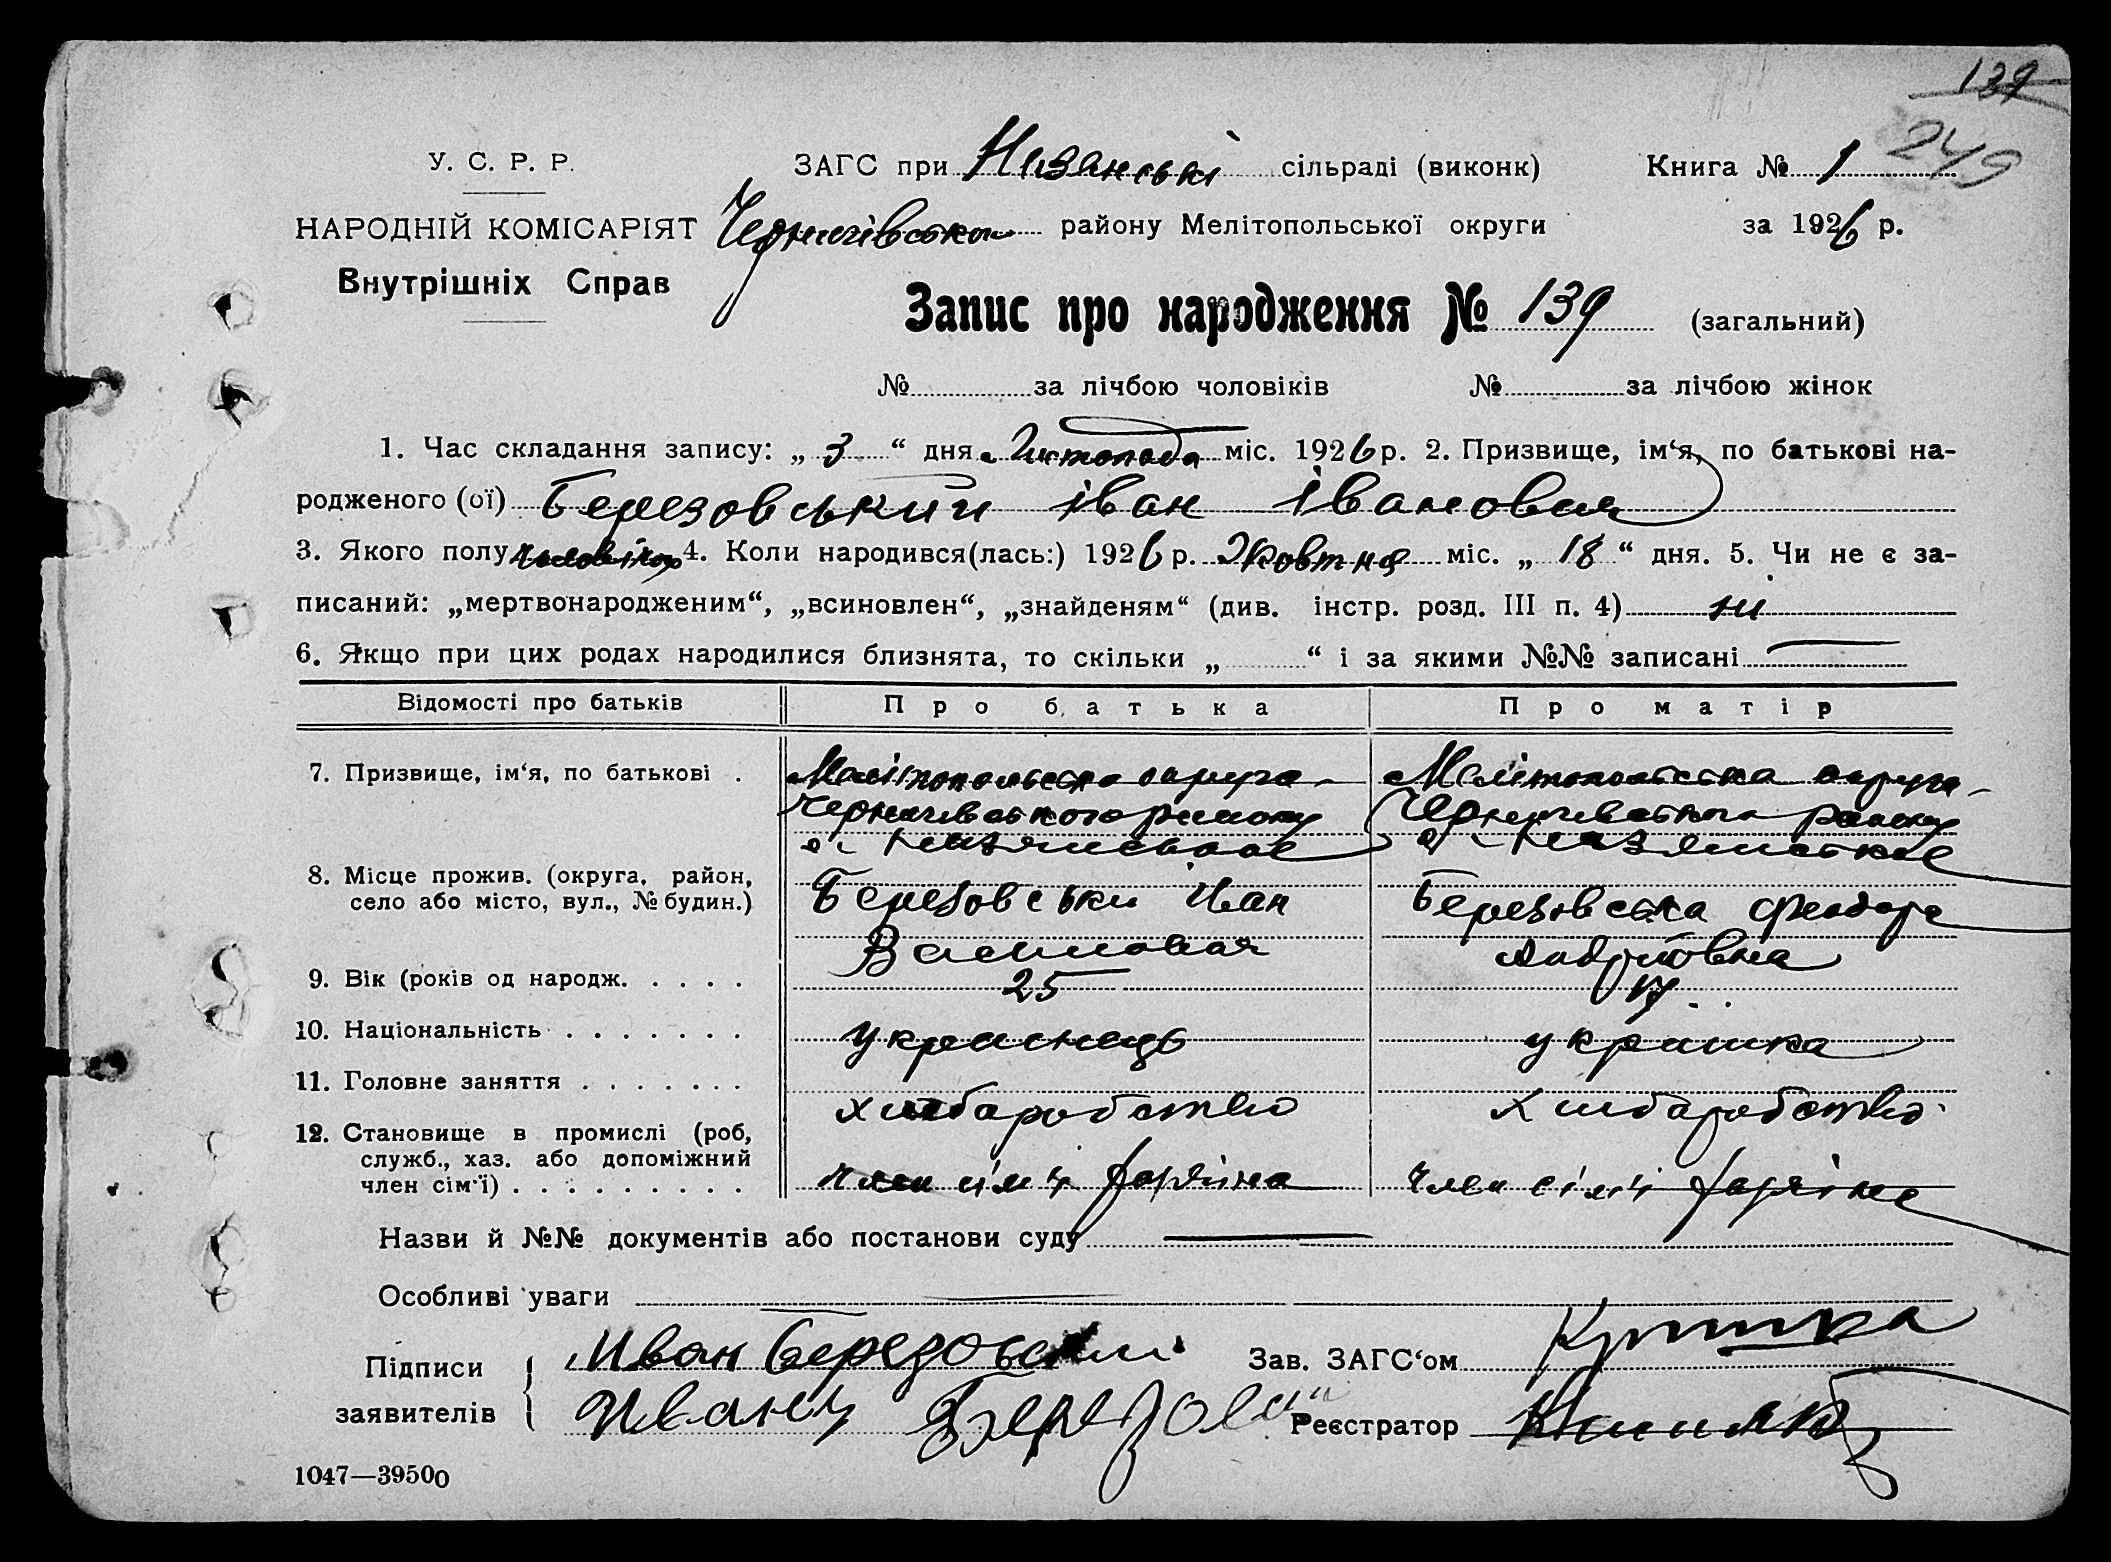 139
249
У. С. Р. Р. ЗАГС при Низянські сільраді (виконк) Книга № 1
НАРОДНІЙ КОМІСАРІЯТ Чернигівсько району Мелітопольської округи за 1926 р.
Внутрішніх Справ
Запис про народження № 139 (загальний)
№ за лічбою чоловіків № за лічбою жінок
1. Час складання запису: „ 3 “ дня Листопада міс. 1926 р. 2. Призвище, ім‘я, по батькові на-
родженого (ої) Березовський Іван Івановия
3. Якого полу чоловічого 4. Коли народився(лась:) 1926 р. Жовтня міс. „ 18 “ дня. 5. Чи не є за-
писаний: „мертвонародженим“, „всиновлен“, „знайденям“ (див. інстр. розд. III п. 4) ні
6. Якщо при цих родах народилися близнята, то скільки „ “ і за якими №№ записані
Відомості про батьків Про батька Про матір
7. Призвище, ім‘я, по батькові . Мелітопольска округа Мелітопольська округа
Чернигівського району Чернигівського району
с. Низянське с. Низянське
8. Місце прожив. (округа, район,
село або місто, вул., № будин.) Березовськи Іван Березовська Феодора
Василовия
9. Вік (років од народж. . . . . 25 17
10. Національність . . . . . . . украінець украінка
11. Головне заняття . . . . . . . хлібаробство хлібаробство
12. Становище в промислі (роб,
служб., хаз. або допоміжний
член сім‘ї) . . . . . . . . . член сімї член сімї
Назви й №№ документів або постанови суду
Особливі уваги
Підписи Иван Березовский Зав. ЗАГС‘ом
заявителів Иванц Реєстратор
1047—39500